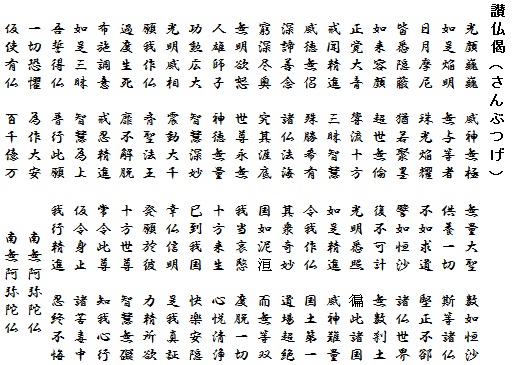 讃仏偈(さんぶつげ)
光顔巍巍　威神無極
如是焔明　無与等者
日月摩尼　珠光焔耀
皆悉隠蔽　猶若聚墨
如来容顔　超世無倫
正覚大音　響流十方
戒聞精進　三昧智慧
威徳無侶　殊勝希有
深諦善念　諸仏法海
窮深尽奥　究其涯底
無明欲怒　世尊永無
人雄師子　神徳無量
功勲広大　智慧深妙
光明威相　震動大千
願我作仏　斉聖法王
過度生死　靡不解脱
布施調意　戒忍精進
如是三昧　智慧為上
吾誓得仏　普行此願
一切恐懼　為作大安
仮使有仏　百千億万
無量大聖　数如恒沙
供養一切　斯等諸仏
不如求道　堅正不郤
譬如恒沙　諸仏世界
復不可計　無数刹土
光明悉照　徧此諸国
如是精進　威神難量
令我作仏　国土第一
其衆奇妙　道場超絶
国如泥洹　而無等双
我当哀愍　度脱一切
十方来生　心悦清浄
已到我国　快楽安隠
幸仏信明　是我真証
発願於彼　力精所欲
十方世尊　智慧無礙
常令此尊　知我心行
仮令身止　諸苦毒中
我行精進　忍終不悔
南無阿弥陀仏
南無阿弥陀仏